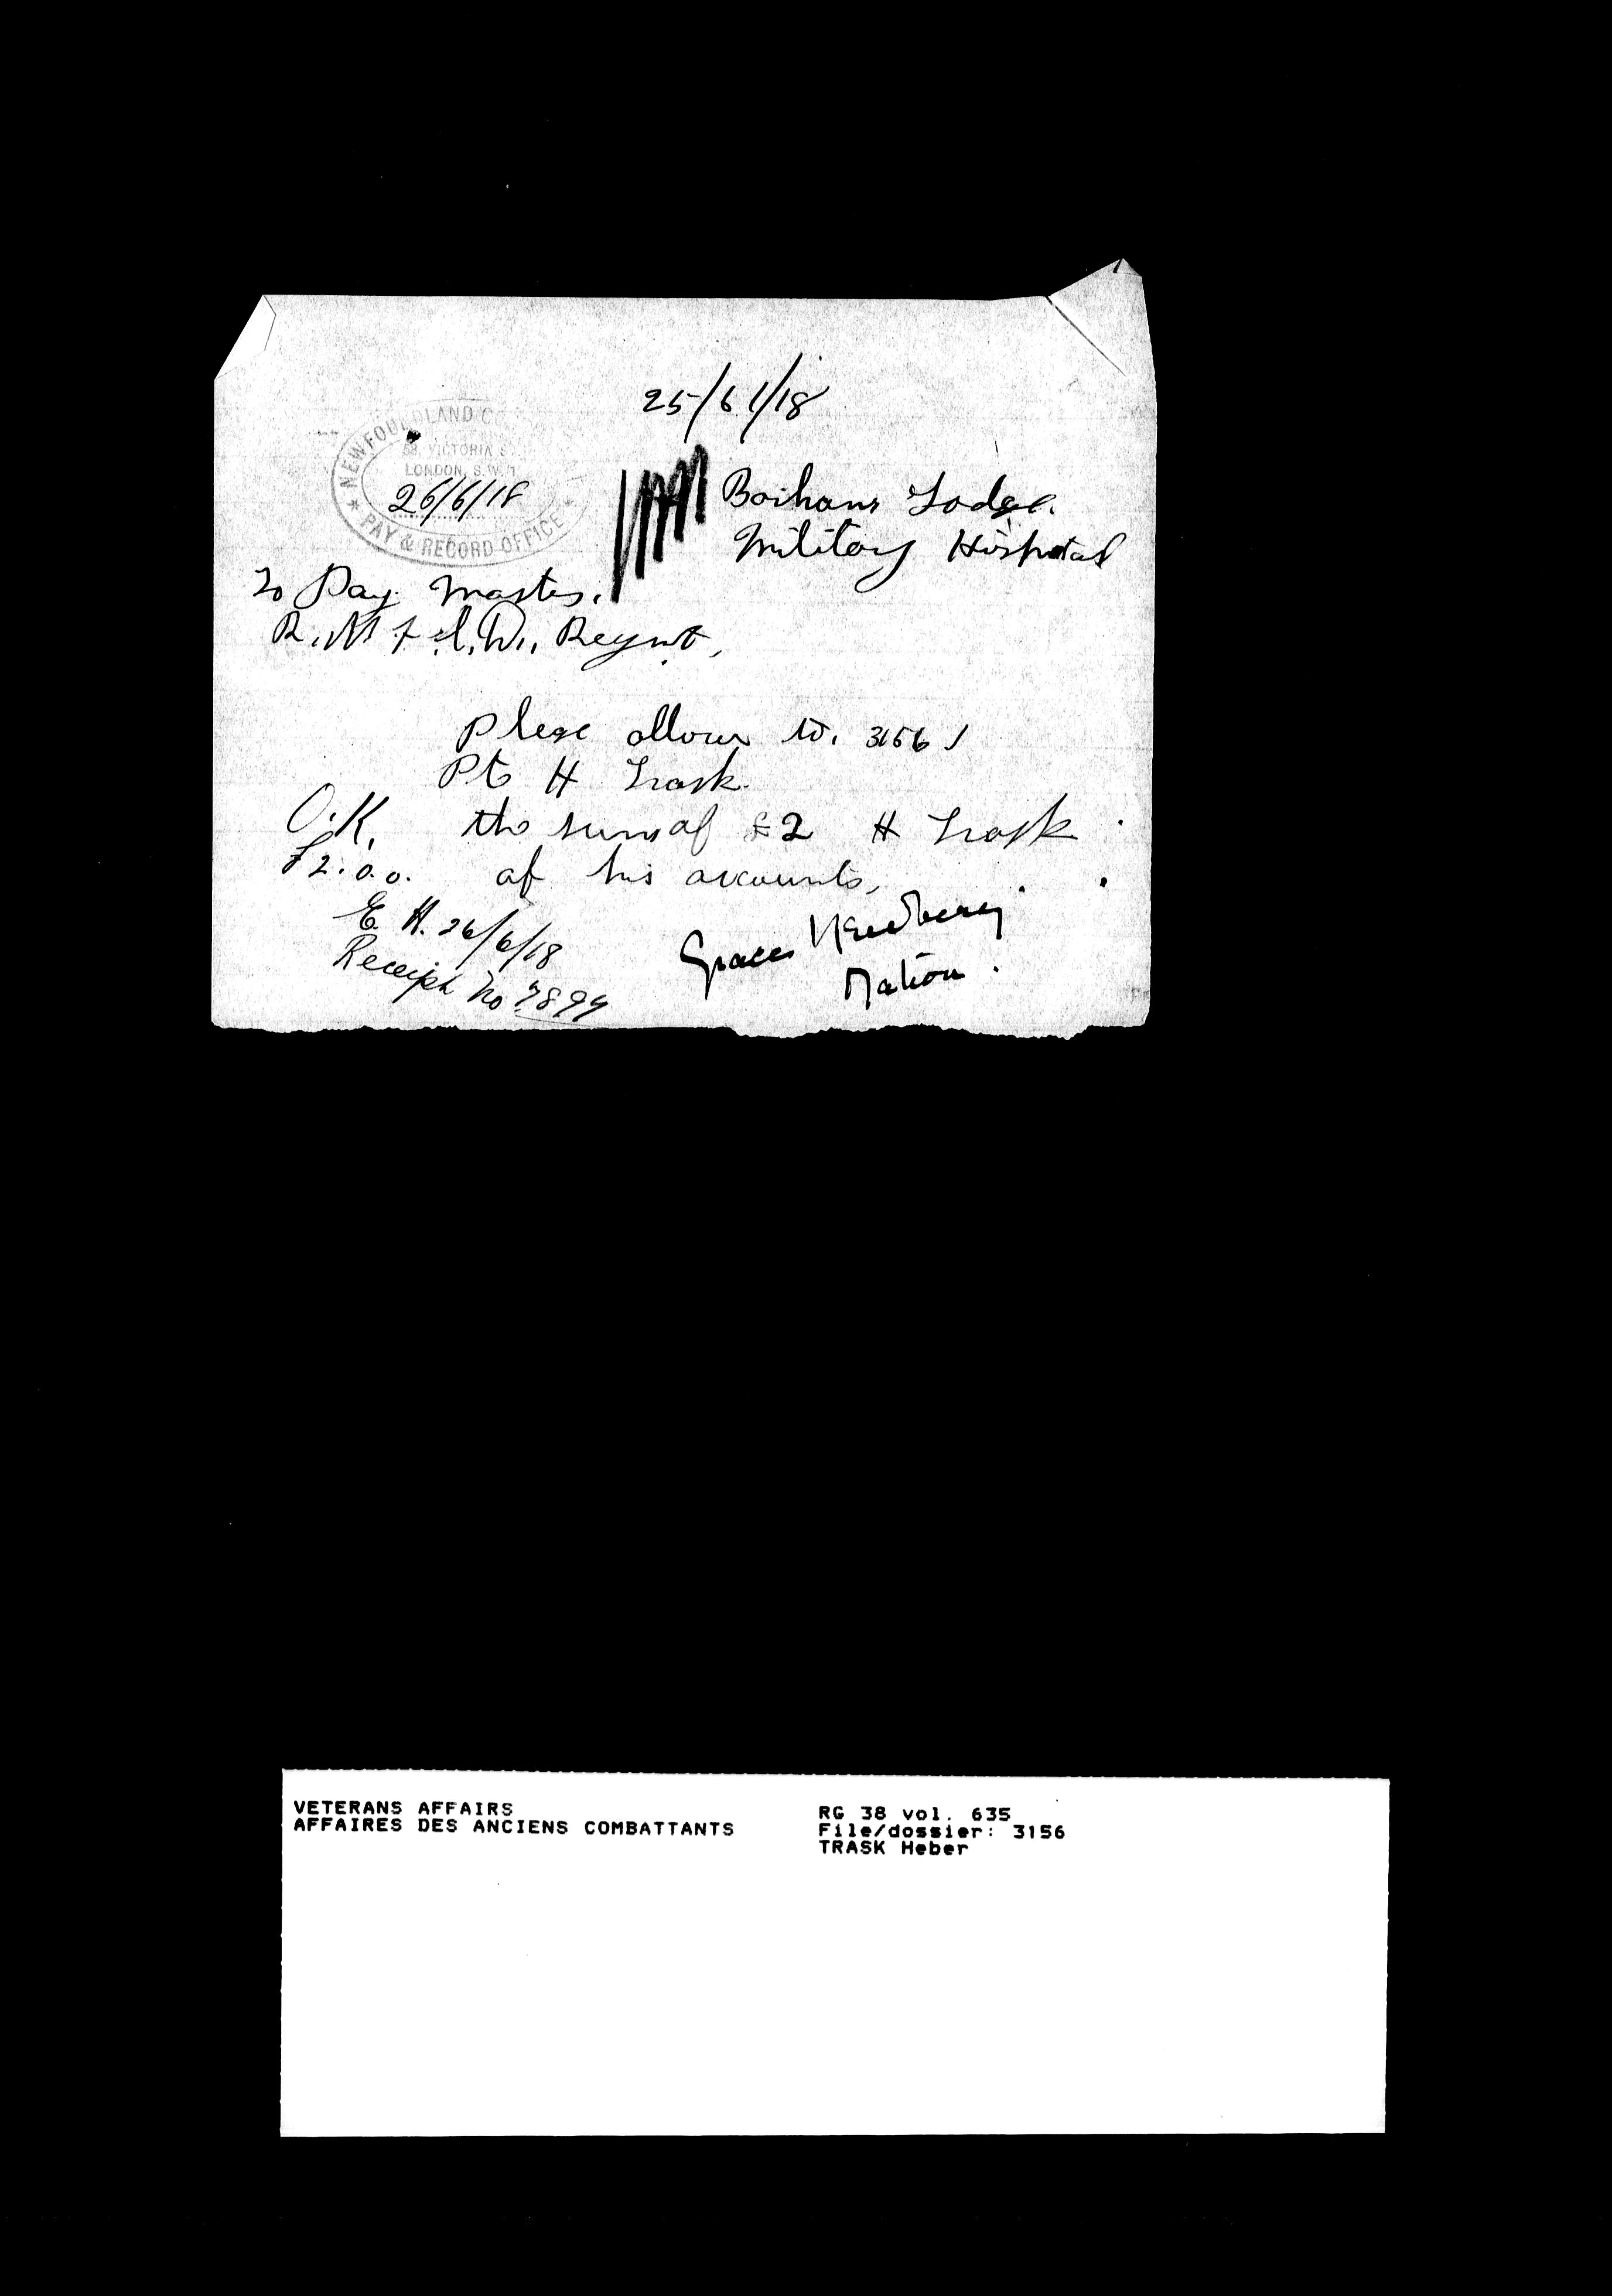 25/6/18
NEWFOUNDLAND
58, VICTORIA S
LONDON, S.W.1
26/6/18
PAY & RECORD OFFICE
Lodge.
Military Hospital
To Pay Master.
Regmt,
Plese allow to. 3156
Pte H Trask.
O.K. the sum of £2 H Trask
£2.0.0. of his accounts,
E. H. 26/6/18
Receipt No 7894
Grace Newbery
Matron.
VETERANS AFFAIRS
AFFAIRES DES ANCIENS COMBATTANTS
RG 38 vol. 635
File/dossier: 3156
TRASK Heber